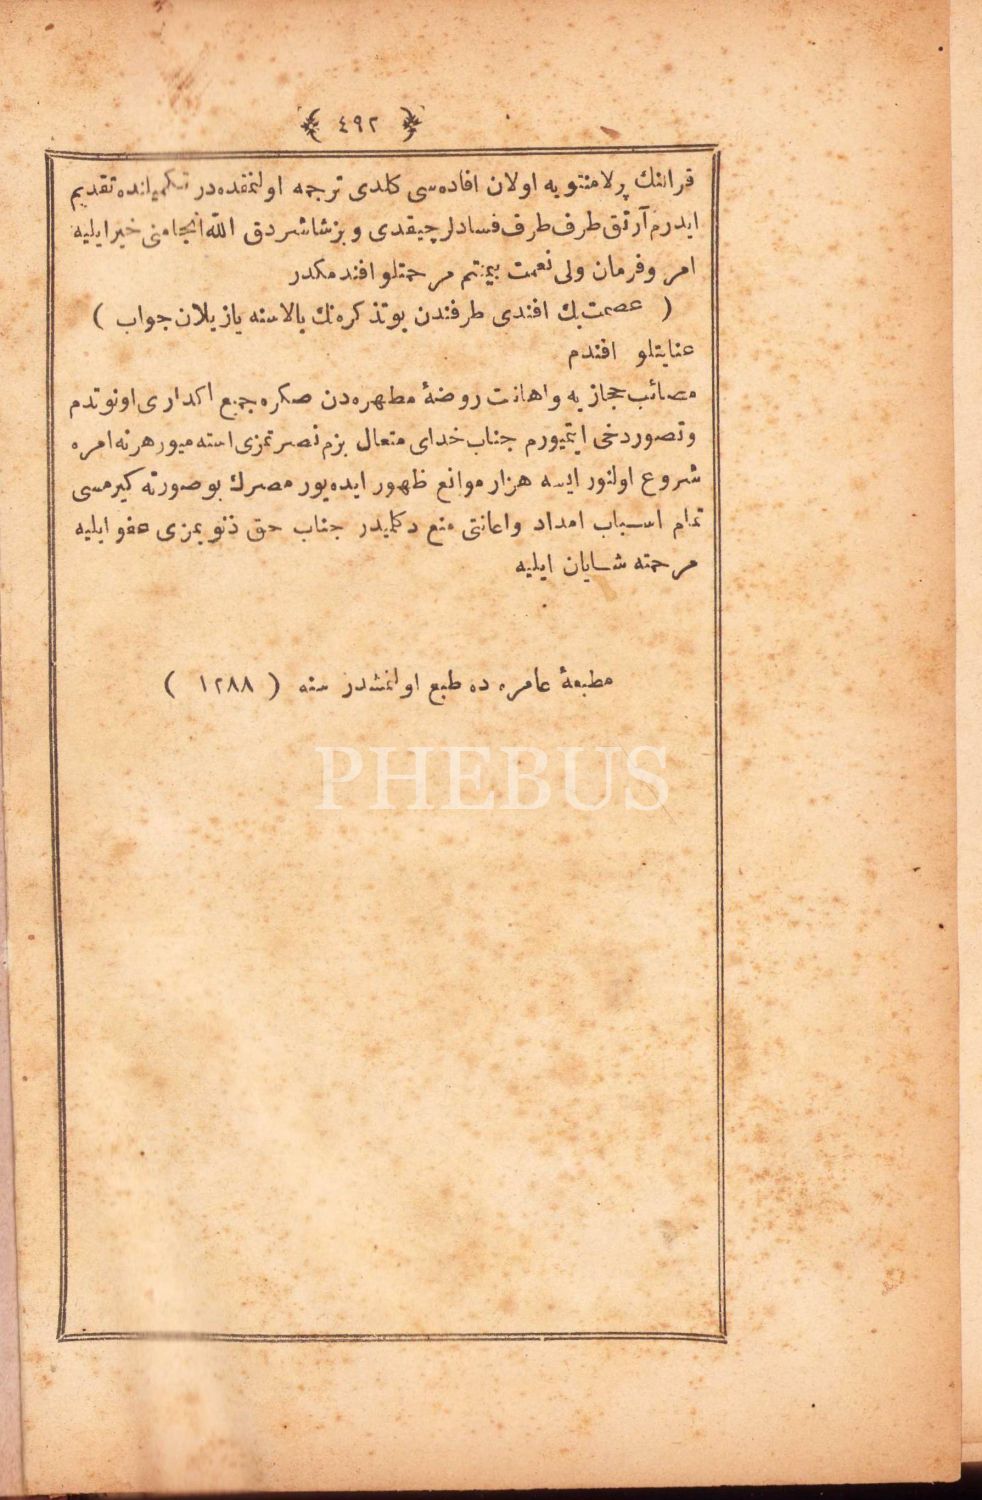 ٤٩٢
قرالنك پرلامنتويه اولان افاده‌سى كلدى ترجمه اولنمقده‌در تكميلنده تقديم
ايدرم آرتق طرف طرف فسادلر چيقدى و بز شاشردق الله انجامنى خير ايليه
امر و فرمان ولى نعمت بيمنتم مرحمتلو افندمكدر
( عصمت بك افندى طرفندن بو تذكره‌نك بالاسنه يازيلان جواب )
عنايتلو افندم
مصائب حجازيه و اهانت روضهٔ مطهره‌دن صكره جميع اكدارى اونوتدم
و تصور دخى ايتميورم جناب خداى متعال بزم نصرتمزى استه‌ميور هر نه امره
شروع اولنور ايسه هزار موانع ظهور ايده‌يور مصرك بو صورته كيرمسى
تمام اسباب امداد و اعانتى منع دكليدر جناب حق ذنوبمزى عفو ايليه
مرحمته شايان ايليه
مطبعهٔ عامره ده طبع اولنمشدر سنه ( ١٢٨٨ )
PHEBUS